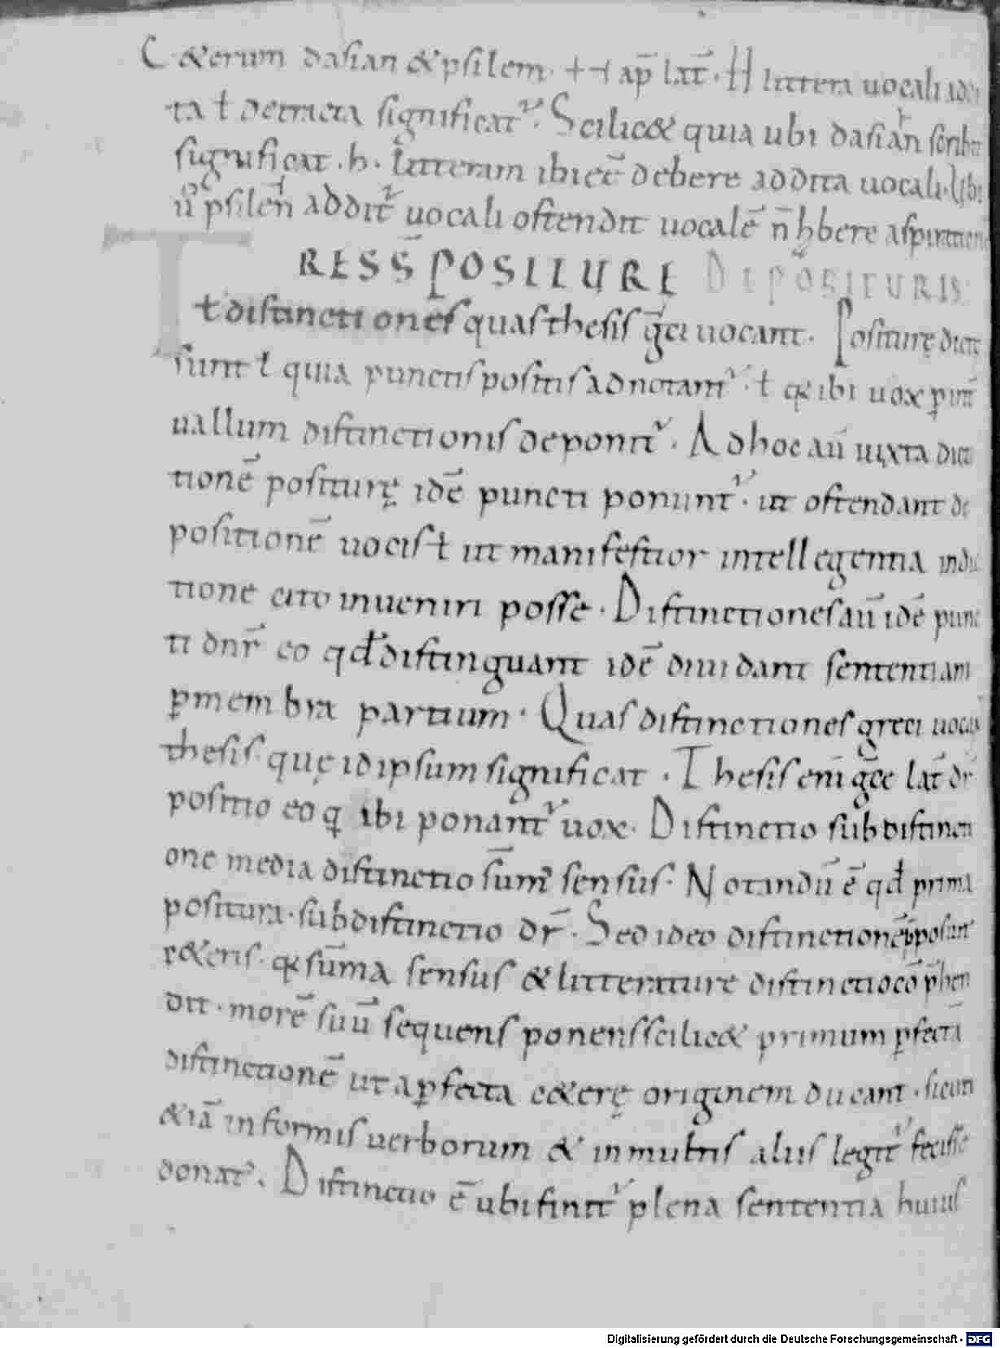 C&erum dasian &psilem. ⊢⊣ ap̄ lat̄. H littera uocali
ta ł detracta significat᷑. Scilic& quia ubi dasian scrib
significat. h. litteram ibi ee᷑ debere addita uocali. Ubi
u̅ psilen̄ addit᷑ uocali ostendit uocale̅ n̅ hbere aspiration
RES S̅ POSITURE DE POSITURIS
T
ł distinctiones quas thesis g̅ci uocant. Positurę dicte
sunt ł quia punctis positis adnotant᷑. ł q̨ ibi uox p̱
uallum distinctionis deponit᷑. Ad hoc au̅ iuxta dic
tione̅ positurę ide̅ puncti ponunt᷑. ut ostendant de
positione̅ uocis ł ut manifestior intellegentia
tione cito inueniri posse. Distinctiones au̅ ide̅ punc
ti dn̅r eo qđ distinguant ide̅ diuidant sententiam
p̱membra partium. Quas distinctiones greci uoca
thesis. quę id ipsum significat. Thesis eni̅ g̅ce lat̅ dr̅
positio eo q̱ ibi ponant᷑ uox. Distinctio subdistincti
one media distinctio su̅mi sensus. Notandu̅ e̅ qđ prima
positura. subdistinctio dr̅. Sed ideo distinctione̅
c&eris. q̨ su̅ma sensus & litterature distinctio co̅p̱hen
dit. more̅ suu̅ sequens ponens scilic& primum p̱fecta̅
distinctione̅ ut a p̱fecta c&erę originem ducant. sicuti
&ia̅ in formis uerborum & in multis aliis legit᷑ fecisse
donat᷑. Distinctio e̅ ubi finit᷑ plena sententia huius
Digitalisierung gefördert durch die Deutsche Forschungsgemeinschaft - DFG